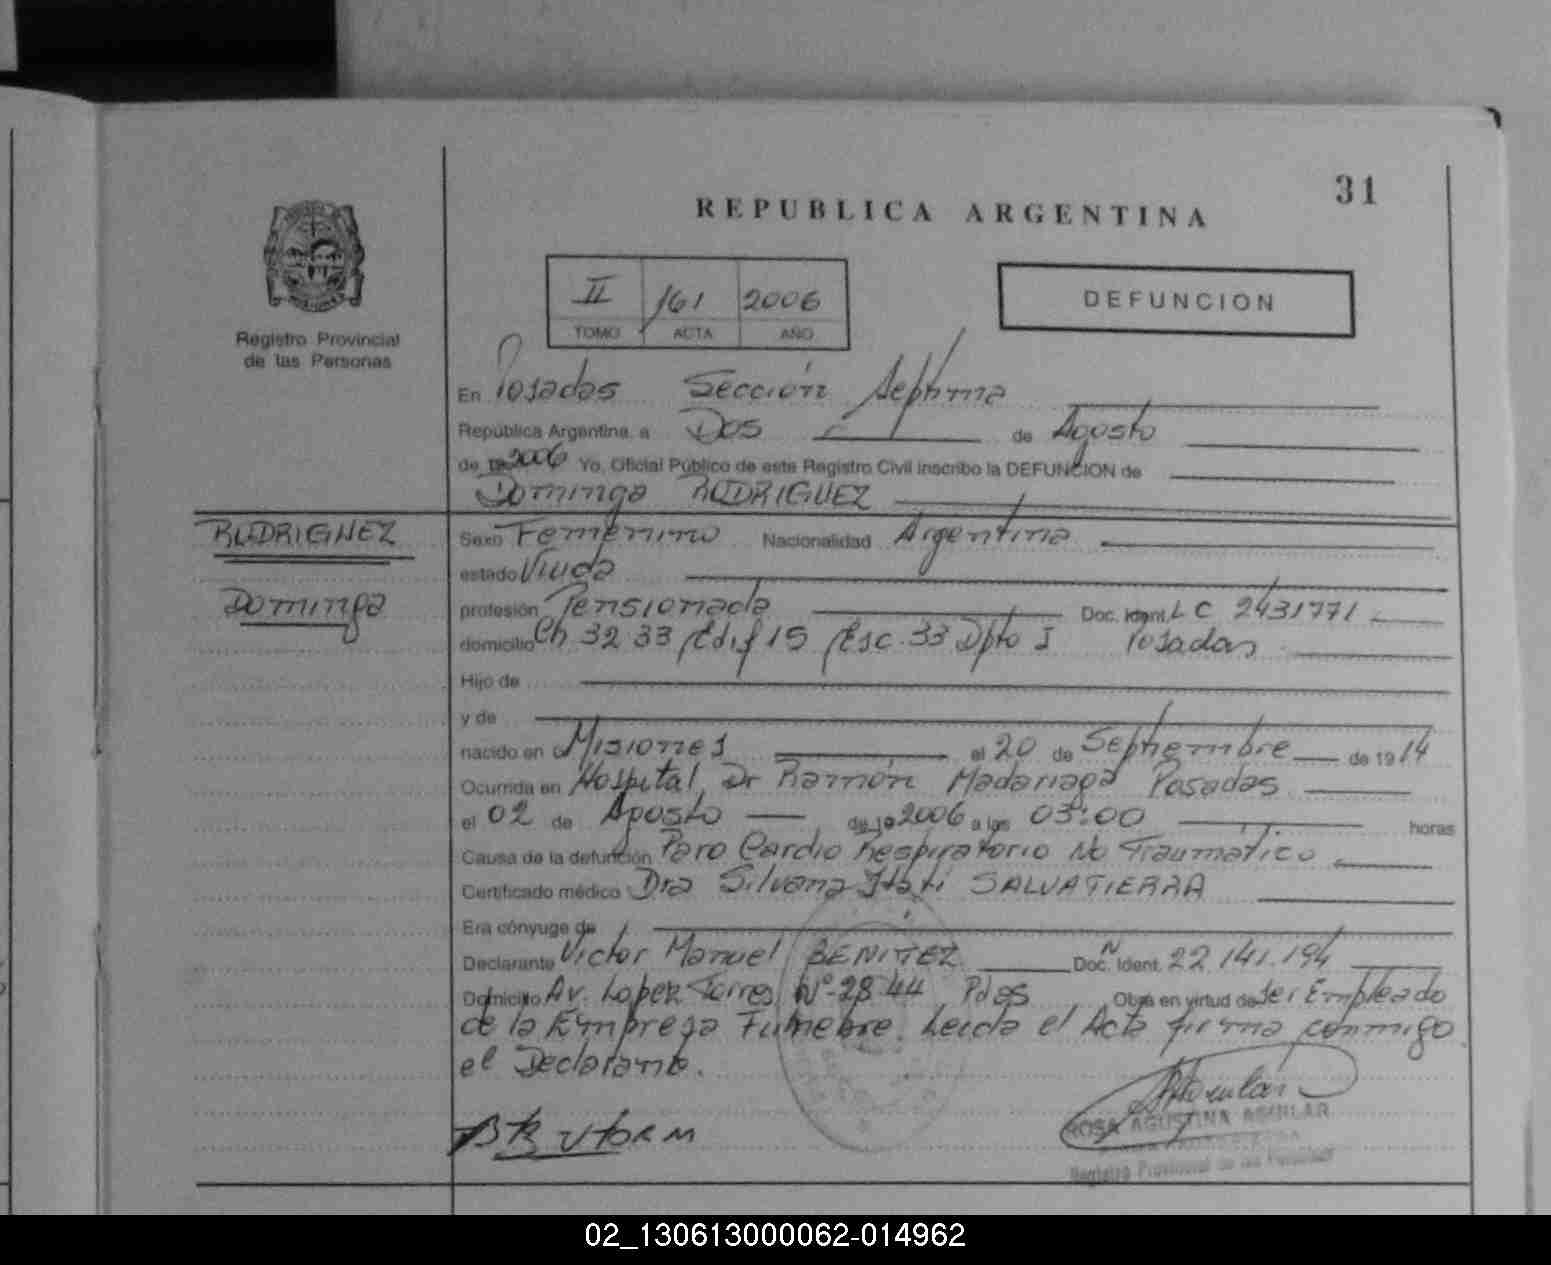 31
REPUBLICA ARGENTINA
Registro Provincial
de las Personas
II 161 2006
TOMO ACTA AÑO
DEFUNCION
En Posadas Sección Septima
República Argentina, a Dos de Agosto
de 2006 Yo, Oficial Público de este Registro Civil inscribo la DEFUNCION de
Dominga RODRIGUEZ
RODRIGUEZ
Dominga
Sexo Femenino Nacionalidad Argentina
estado Viuda
profesión Pensionada Doc. Ident. LC 2431771
domicilio Ch. 32 33 Edif 15 Esc. 33 Dpto I Posadas
Hijo de
y de
nacido en Misiones el 20 de Septiembre de 1914
Ocurrida en Hospital Dr Ramón Madariaga Posadas
el 02 de Agosto de 2006 a las 03:00 horas
Causa de la defunción Paro Cardio Respiratorio No Traumático
Certificado médico Dra Silvana Itatí SALVATIERRA
Era cónyuge de
Declarante Victor Manuel BENITEZ Doc. N Ident. 22.141.194
Domicilio Av. Lopez Torres Nº 2844 Pdas Obra en virtud de ser Empleado
de la Empresa Funebre. Leida el Acta firma conmigo
el Declarante.
ROSA AGUSTINA AGUILAR
Registro Provincial de las Personas
02_130613000062-014962